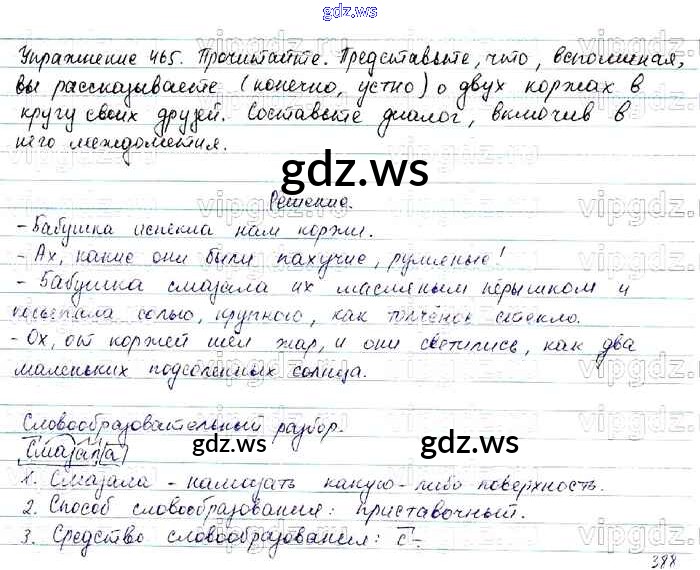 gdz.ws
Упражнение 465. Прочитайте. Представьте, что, вспоминая,
вы рассказываете (конечно, устно) о двух коржах в
кругу своих друзей. Составьте диалог, включив в
него междометия.
gdz.ws
Решение.
- Бабушка испекла нам коржи.
- Ах, какие они были пахучие, румяные!
- Бабушка смазала их масляным пёрышком и
посыпала солью, крупною, как толчёное стекло.
- Ох, от коржей шёл жар, и они светились, как два
маленьких подсоленных солнца.
Словообразовательный разбор.
gdz.ws gdz.ws
Смазала
1. Смазала - намазать какую-либо поверхность.
2. Способ словообразования: приставочный.
3. Средство словообразования: с-.
388